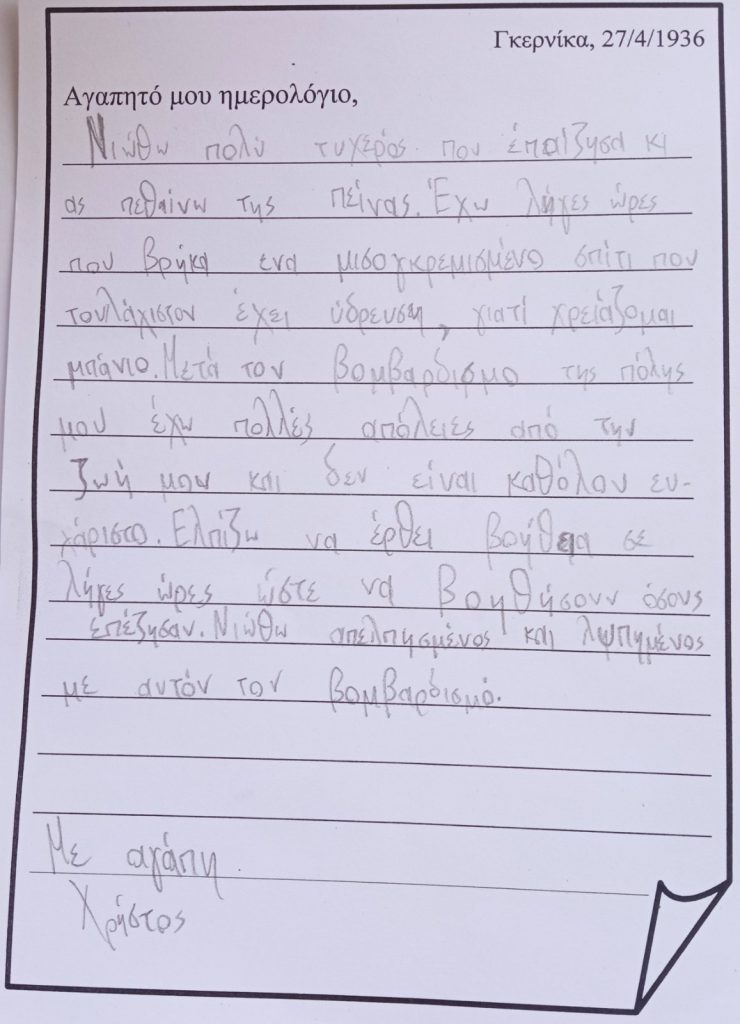 Γκερνίκα, 27/4/1936
Αγαπητό μου ημερολόγιο,
Νιώθω πολύ τυχερός που έπαιζησα κι
ας πεθαίνω της πείνας. Έχω λήγες ώρες
που βρήκα ενα μισογκρεμισμένο σπίτι που
τουλάχιστον έχει ύδρευση, γιατί χρειάζομαι
μπάνιο. Μετά τον βομβαρδισμο της πόλης
μου έχω πολλές απόλειες από την
ζωή μου και δεν είναι καθόλου ευ-
χάριστο. Ελπίζω να έρθει βοήθεια σε
λήγες ώρες ώστε να βοηθήσουν όσους
επέζησαν. Νιώθω απελπησμένος και λυπημένος
με αυτόν τον βομβαρδισμό.
Με αγάπη
Χρήστος